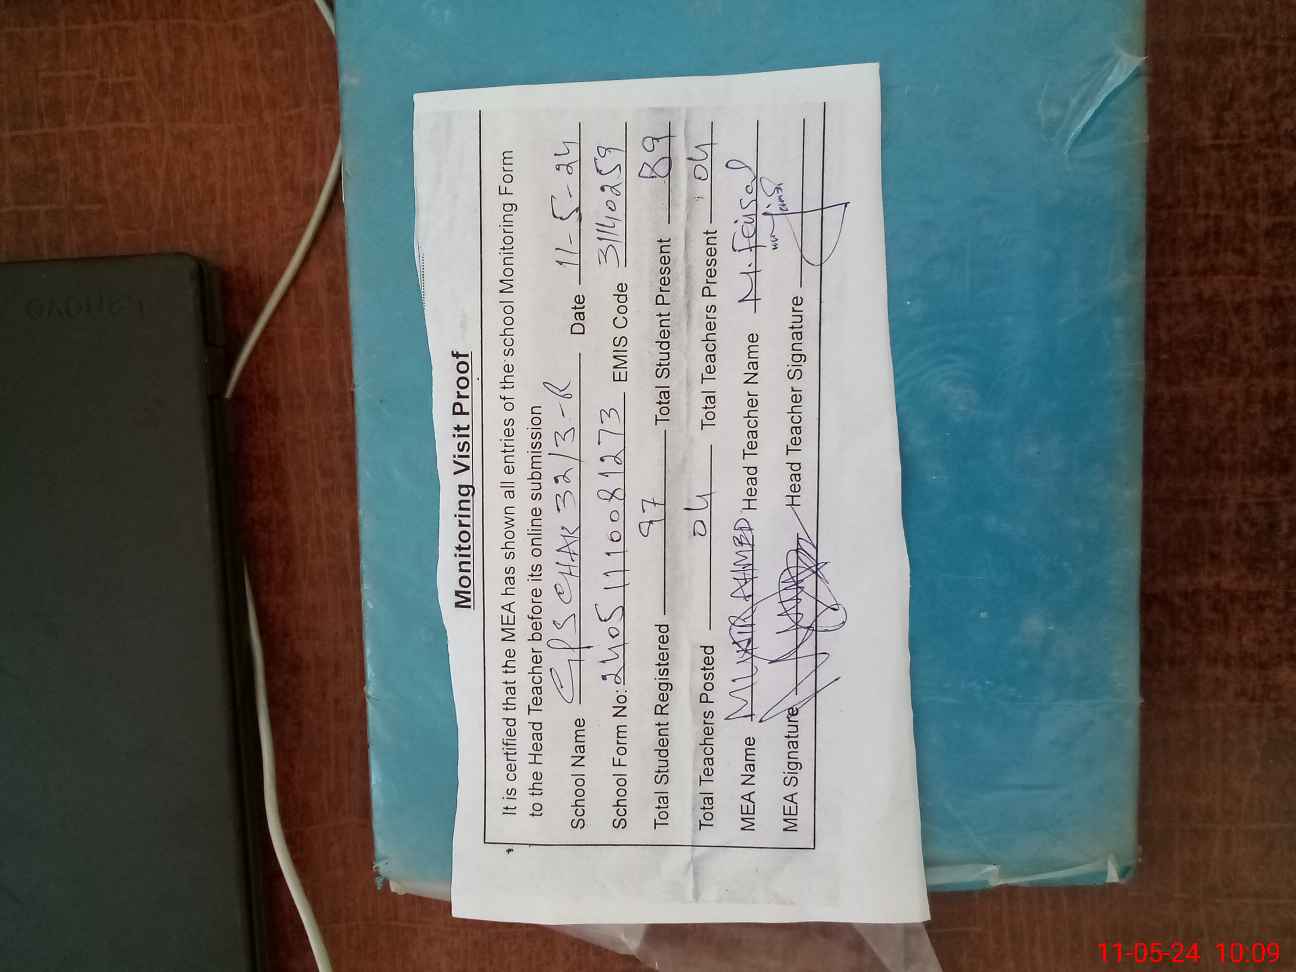 Monitoring Visit Proof
It is certified that the MEA has shown all entries of the school Monitoring Form
to the Head Teacher before its online submission
School Name GPS CHAK 32/3-R Date 11-5-24
School Form No: 2405111081273 EMIS Code 31140259
Total Student Registered 97 Total Student Present 89
Total Teachers Posted 04 Total Teachers Present 04
MEA Name MUNIR AHMED Head Teacher Name M. Feisal
MEA Signature Head Teacher Signature
Lenovo
11-05-24 10:09